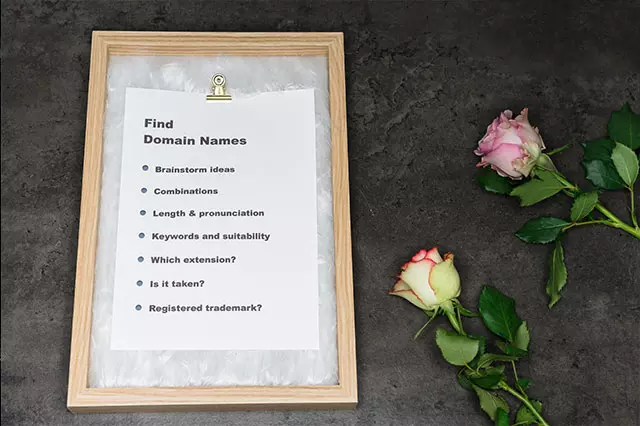 Find
Domain Names
Brainstorm ideas
Combinations
Length & pronunciation
Keywords and suitability
Which extension?
Is it taken?
Registered trademark?